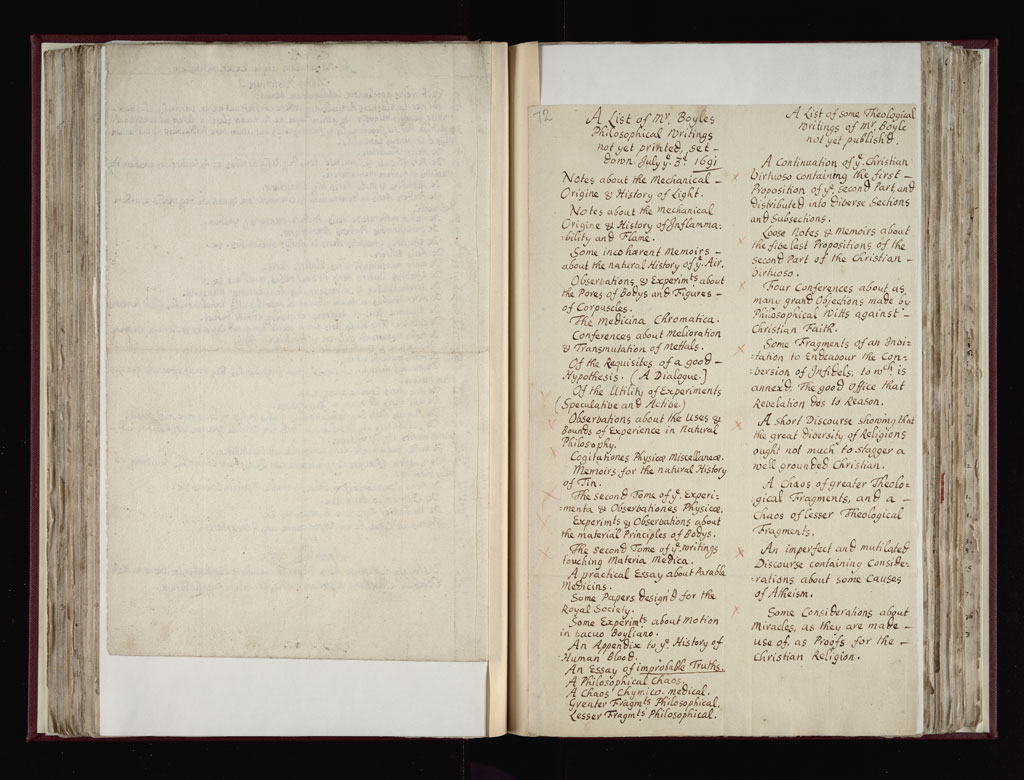 72
A List of Mr. Boyles
Philosophical Writings
not yet printed, set-
down July ye. 3d. 1691
Notes about the Mechanical-
Origine & History of Light.
Notes about the Mechanical
Origine & History of Inflamma:
:bility and Flame.
Some incohærent Memoirs-
about the natural History of ye. Air.
Observations & Experimts about
the Pores of Bodys and Figures-
of Corpuscles.
The Medicina Chromatica.
Conferences about Melioration
& Transmutation of Mettals.
Of the Requisites of a good-
Hypothesis. (A Dialogue.]
Of the Utility of Experiments
(Speculative and Active.)
Observations about the Uses &
Bounds of Experience in Natural
Philosophy.
Cogitationes Physicæ Miscellaneæ.
Memoirs for the natural History
of Tin.
The second Tome of ye. Experi-
:menta & Observationes Physicæ.
Experimts & Observations about
the material Principles of Bodys.
The second Tome of ye. writings
touching Materia Medica.
A practical Essay about Parable
Medicins.
Some Papers design'd for the
Royal Society.
Some Experimts about Motion
in Vacuo Boyliano.
An Appendix to ye. History of
Human Blood.
An Essay of improbable Truths.
A Philosophical Chaos.
A Chaos Chymico-medical.
Greater Fragmts Philosophical.
Lesser Fragmts Philosophical.
A List of some Theological
Writings of Mr. Boyle
not yet publish'd.
A Continuation of ye. Christian
Virtuoso containing the first-
Proposition of ye. second Part, and
distributed into diverse Sections
and Subsections.
Loose Notes & Memoirs about
the five last Propositions of the
second Part of the Christian-
Virtuoso.
Four Conferences about as
many grand Objections made by
Philosophical Witts against-
Christian Faith.
Some Fragments of an Invi:
:tation to Endeavour the Con:
:version of Infidels; to wch is
annexd, The good Office that
Revelation dos to Reason.
A short Discourse showing that
the great diversity of Religions
ought not much to stagger a
well grounded Christian.
A Chaos of greater Theolo:
:gical Fragments, and a-
Chaos of lesser Theological
Fragments.
An imperfect and mutilated
Discourse containing Conside:
:rations about some Causes
of Atheism.
Some Considerations about
Miracles, as they are made-
use of, as Proofs for the-
Christian Religion.